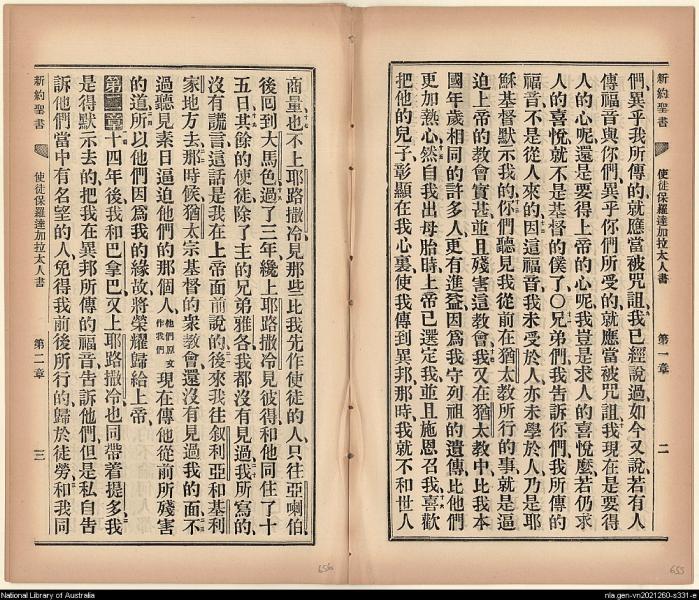 新約聖書 使徒保羅達加拉太人書 第一章 二
們、異乎我所傳的、就應當被咒詛、我已經說過、如今又說、若有人
傳福音與你們、異乎你們所受的、就應當被咒詛、我現在是要得
人的心呢、還是要得上帝的心呢、我豈是求人的喜悅麼、若仍求
人的喜悅、就不是基督的僕了〇兄弟們、我告訴你們、我所傳的
福音、不是從人來的、因這福音、我未受於人、亦未學於人、乃是耶
穌基督默示我的、你們聽見我從前在猶太教所行的事、就是逼
迫上帝的教會實甚、並且殘害這教會、我又在猶太教中、比我本
國年歲相同的許多人更有進益、因爲我守列祖的遺傳、比他們
更加熱心、然自我出母胎時、上帝已選定我、並且施恩召我、喜歡
把他的兒子、彰顯在我心裏、使我傳到異邦、那時我就不和世人
商量、也不上耶路撒冷、見那些比我先作使徒的人、只往亞喇伯、
後囘到大馬色、過了三年、纔上耶路撒冷見彼得、和他同住了十
五日、其餘的使徒、除了主的兄弟雅各、我都沒有見過、我所寫的、
沒有謊言、這話是我在上帝面前說的、後來我往叙利亞和基利
家地方去、那時候、猶太宗基督的衆教會、還沒有見過我的面、不
過聽見素日逼迫他們的那個人、他們原文作我們現在傳他從前所殘害
的道、所以他們因爲我的緣故、將榮耀歸給上帝、
第二章十四年後、我和巴拿巴又上耶路撒冷、也同帶着提多、我
是得默示去的、把我在異邦所傳的福音、告訴他們、但是私自告
訴他們當中有名望的人、免得我前後所行的、歸於徒勞、和我同
新約聖書 使徒保羅達加拉太人書 第二章 三
656
655
National Library of Australia
nla.gen-vn2021260-s331-e